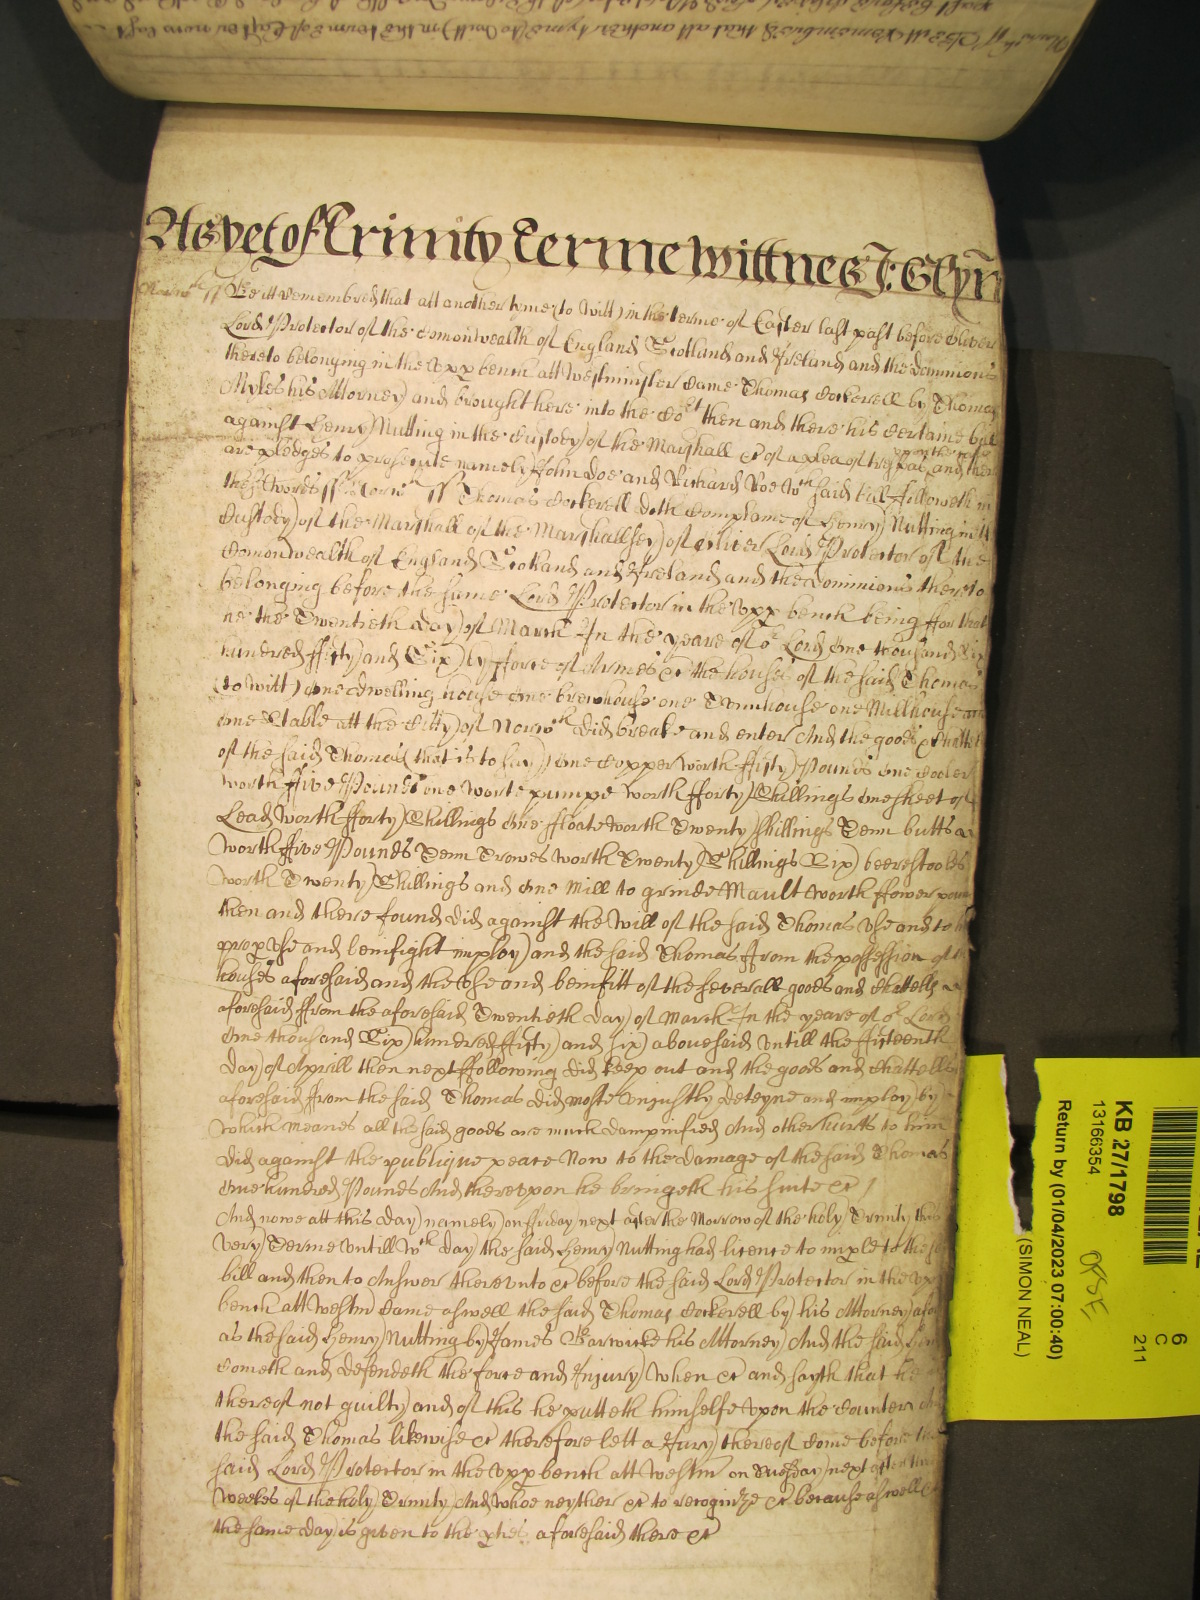 As yet of Trinity Terme Wittnes J: Glyn
Norwch ss Be itt remembred that att another tyme (to witt) in the terme of Easter last past before Oliver
Lord Protector of the Comonwealth of England Scotland and Ireland and the dominions
thereto belonging in the Upp bench att Westminster Came Thomas Cockerell by Thomas
Myles his Attorney and brought here into the Cort then and there his Certaine bill
against Henry Nutting in the Custody of the Marshall &c of a plea of trespas and there
are pledges to prosecute namely John Doe and Richard Roe wch said bill followeth in
these words ss Norwch ss Thomas Cockerell doth Complaine of Henry Nutting in the
Custody of the Marshall of the Marshallsey of Oliver Lord Protector of the
Comonwealth of England Scotland and Ireland and the Dominions thereto
belonging before the same Lord Protector in the Upp bench being ffor that
he the Twentieth day of March In the yeare of or Lord One thousand Six
hundred ffifty and Six by fforce of Armes &c the houses of the said Thomas
(to witt) one dwelling house one brewhouse one Tunnhouse one Millhouse and
one Stable att the Citty of Norwch did breake and enter And the goods & Chattells
of the said Thomas (that is to say) one Copper worth ffifty Pounds one Cooler
worth ffive Pounds one worte pumpe worth fforty Shillings one sheet of
Lead worth fforty Shillings One floate worth Twenty shillings Tenn butts
worth ffive Pounds Tenn Trowes worth Twenty Shillings Six beerestooles
worth Twenty Shillings and One Mill to grinde Mault worth ffower
then and there found did against the will of the said Thomas use and to
propp use and benifight imploy and the said Thomas ffrom the possession of
houses aforesaid and the use and benifitt of the severall goods and Chattells
aforesaid ffrom the aforesaid Twentieth day of March In the yeare of or Lord
One thousand Six hundred ffifty and six abovesaid untill the ffifteenth
day of Aprill then next ffollowing did keep out and the goods and Chattells
aforesaid ffrom the said Thomas did moste Unjustly deteyne and imploy by
which meanes all the said goods are much dampnified And other hurts to him
did against the publique peace Now to the damage of the said Thomas
One hundred Pounds And thereupon he bringeth his suite &c
And nowe att this day namely on ffriday next after the Morrow of the holy Trinity this
very Terme untill wch day the said Henry Nutting had licence to imple to the
bill and then to Answer thereunto &c before the said Lord Protector in the Upp
bench att Westm Came aswell the said Thomas Cockerell by his Attorney
as the said Henry Nutting by James Barwicke his Attorney And the said
Cometh and defendeth the force and Injury when &c and sayth that he
thereof not guilty and of this he putteth himselfe upon the Countery
the said Thomas likewise &c therefore lett a Jury thereof Come before the
said Lord Protector in the Upp bench att Westm on Tuesday next after
weekes of the holy Trinity And whoe neyther &c to recognize &c because aswell
the same day is given to the pties aforesaid there &c
KB 27/1798
13166354
Return by (01/04/2023 07:00:40)
(SIMON NEAL)
6
C
211